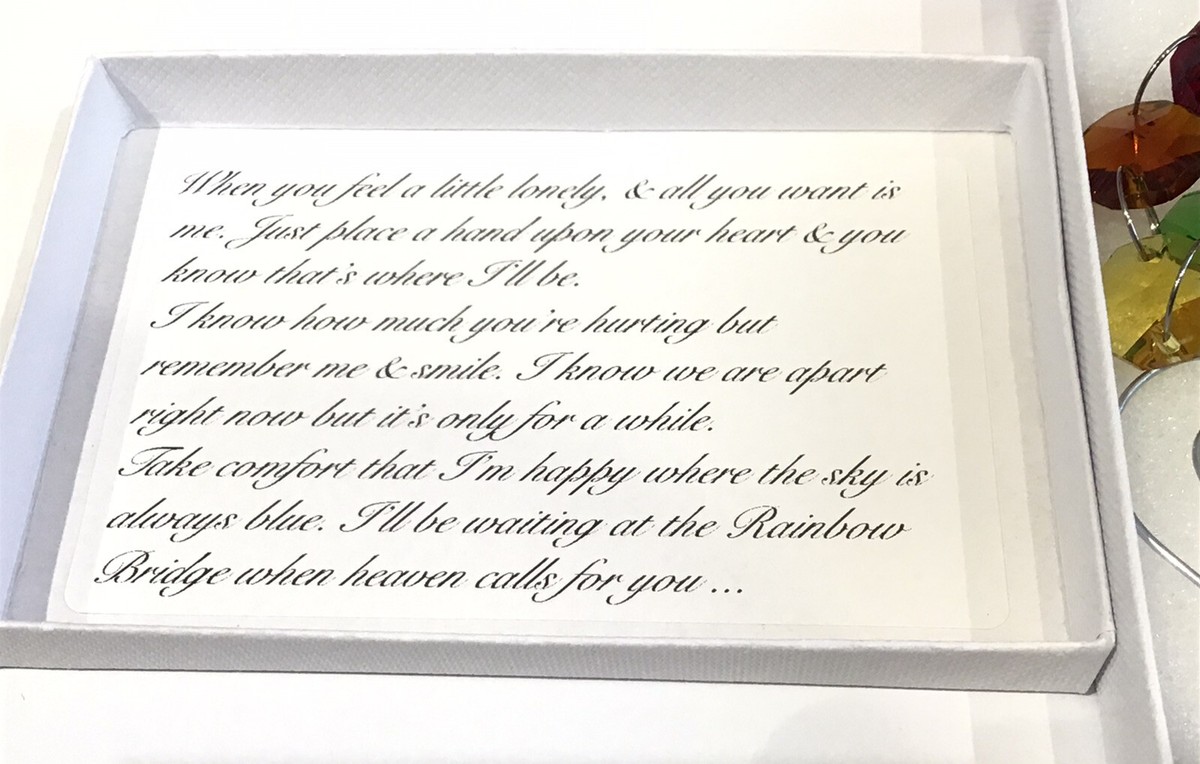 When you feel a little lonely, & all you want is
me. Just place a hand upon your heart & you
know that's where I'll be.
I know how much you're hurting but
remember me & smile. I know we are apart
right now but it's only for a while.
Take comfort that I'm happy where the sky is
always blue. I'll be waiting at the Rainbow
Bridge when heaven calls for you ...